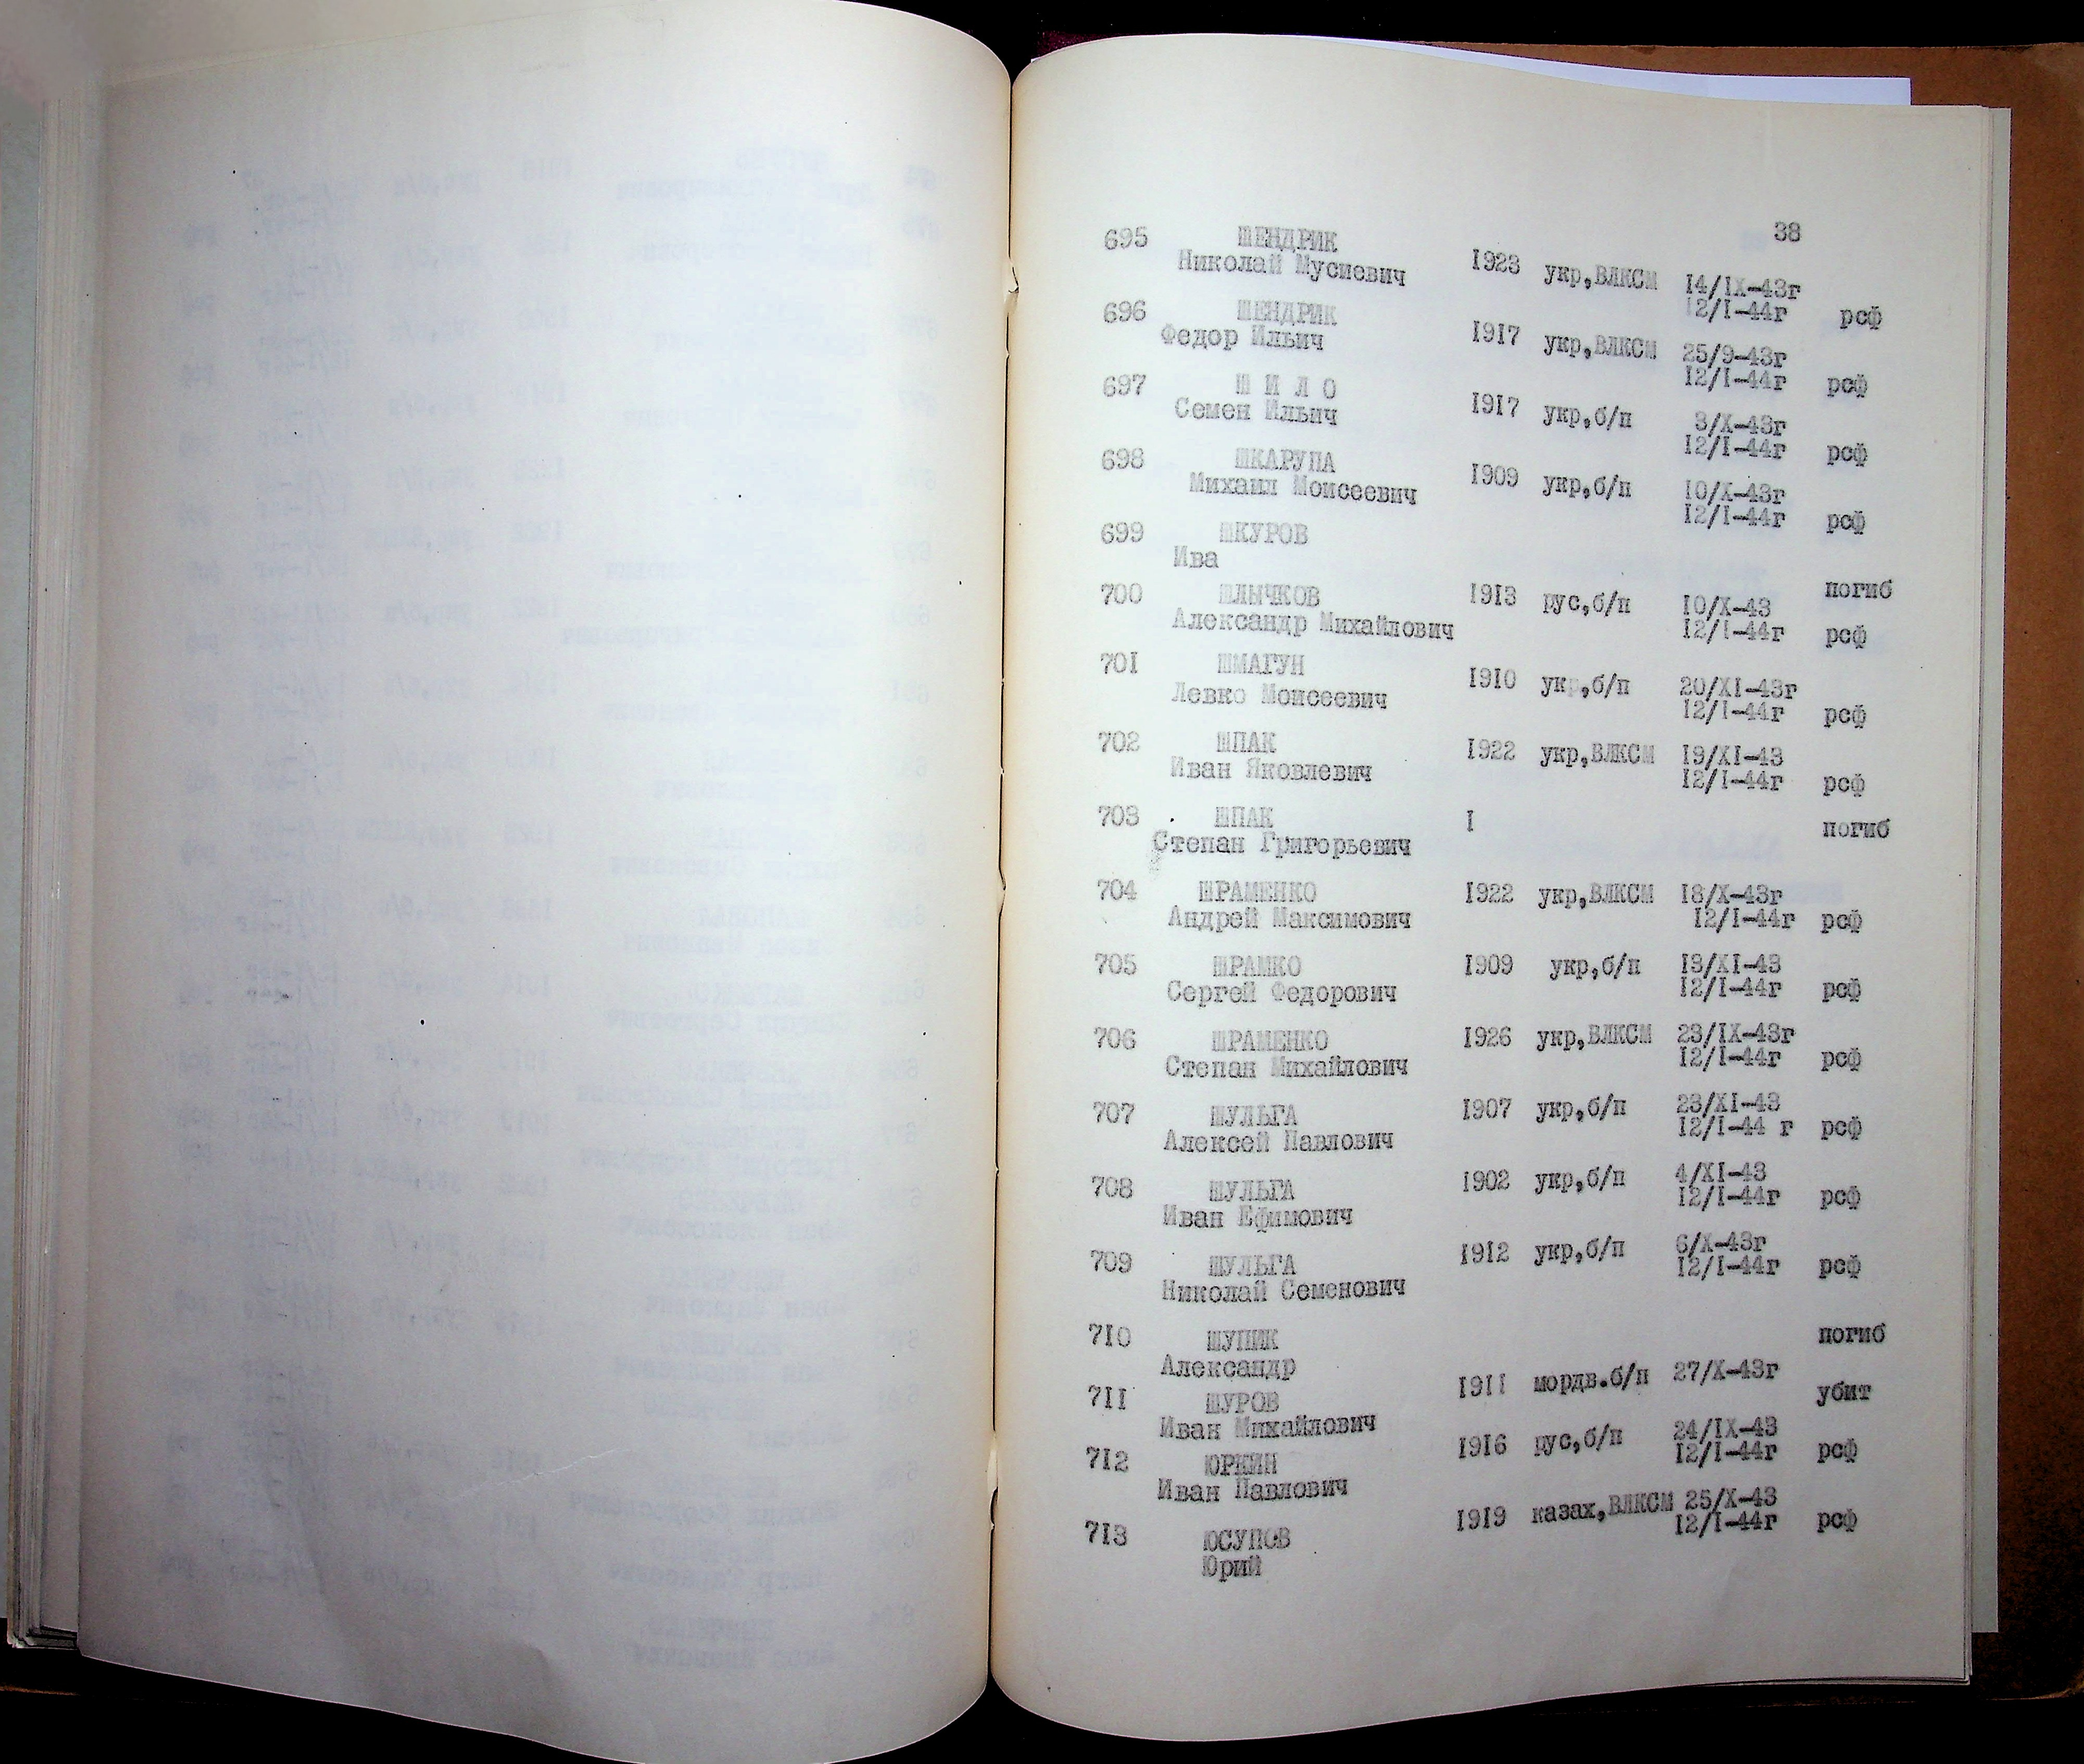 38
695 ШЕНДРИК
Николай Мусиевич 1923 укр,ВЛКСМ 14/IX-43г
12/I-44г рсф
696 ШЕНДРИК
Федор Ильич 1917 укр,ВЛКСМ 25/9-43г
12/I-44г рсф
697 Ш И Л О
Семен Ильич 1917 укр,б/п 3/X-43г
12/I-44г рсф
698 ШКАРУПА
Михаил Моисеевич 1909 укр,б/п 10/X-43г
12/I-44г рсф
699 ШКУРОВ
Ива
погиб
700 ШЛЫЧКОВ 1913 рус,б/п 10/X-43
Александр Михайлович 12/I-44г рсф
701 ШМАГУН
Левко Моисеевич 1910 укр,б/п 20/XI-43г
12/I-44г рсф
702 ШПАК 1922 укр,ВЛКСМ 19/XI-43
Иван Яковлевич 12/I-44г рсф
703 ШПАК I погиб
Степан Григорьевич
704 ШРАМЕНКО 1922 укр,ВЛКСМ 18/X-43г
Андрей Максимович 12/I-44г рсф
705 ШРАМКО 1909 укр,б/п 13/XI-43
Сергей Федорович 12/I-44г рсф
706 ШРАМЕНКО 1926 укр,ВЛКСМ 23/IX-43г
Степан Михайлович 12/I-44г рсф
707 ШУЛЬГА 1907 укр,б/п 23/XI-43
Алексей Павлович 12/I-44 г рсф
708 ШУЛЬГА 1902 укр,б/п 4/XI-43
Иван Ефимович 12/I-44г рсф
709 ШУЛЬГА 1912 укр,б/п 6/X-43г
Николай Семенович 12/I-44г рсф
710 ШУПИК погиб
Александр
711 ШУРОВ 1911 мордв.б/п 27/X-43г убит
Иван Михайлович
712 ЮРКИН 1916 рус,б/п 24/IX-43
Иван Павлович 12/I-44г рсф
713 ЮСУПОВ 1919 казах,ВЛКСМ 25/X-43
Юрий 12/I-44г рсф